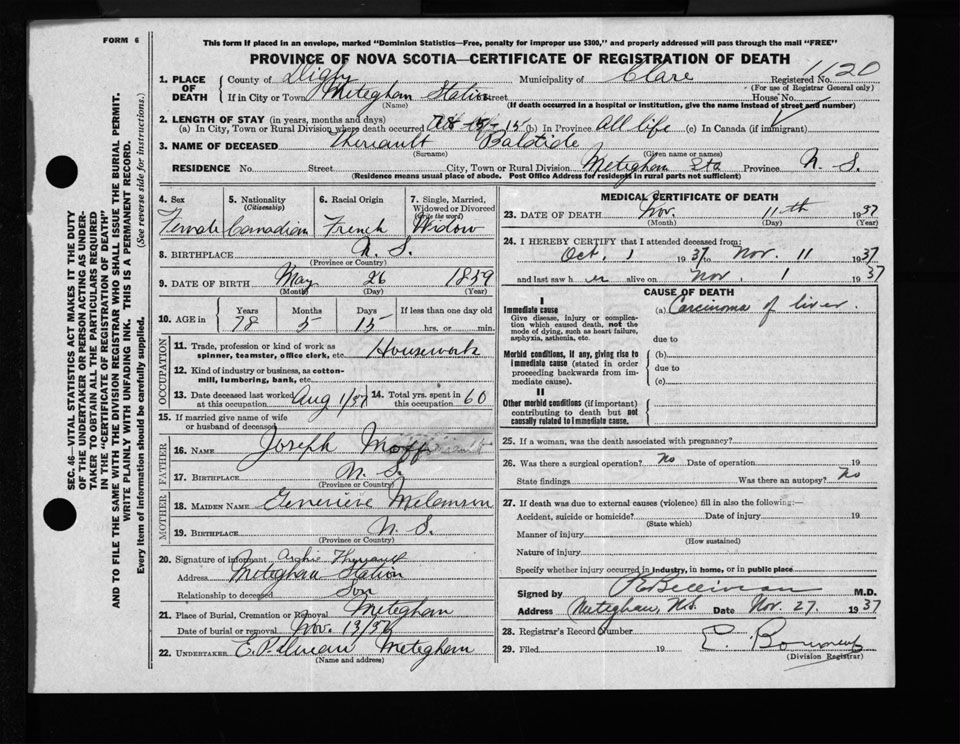 FORM 6
This form if placed in an envelope, marked "Dominion Statistics—Free, penalty for improper use $300," and properly addressed will pass through the mail "FREE"
PROVINCE OF NOVA SCOTIA—CERTIFICATE OF REGISTRATION OF DEATH
1. PLACE OF DEATH
County of Digby Municipality of Clare Registered No. 1120
(For use of Registrar General only)
If in City or Town Meteghan Station Street House No.
(Name) (If death occurred in a hospital or institution, give the name instead of street and number)
2. LENGTH OF STAY (in years, months and days)
(a) In City, Town or Rural Division where death occurred 15 (b) In Province All life (c) In Canada (if immigrant)
3. NAME OF DECEASED Theriault
(Surname) (Given name or names)
RESIDENCE No. Street City, Town or Rural Division Meteghan Sta Province N. S.
(Residence means usual place of abode. Post Office Address for residents in rural parts not sufficient)
4. Sex Female
5. Nationality (Citizenship) Canadian
6. Racial Origin French
7. Single, Married, Widowed or Divorced (Write the word) Widow
8. BIRTHPLACE N. S.
(Province or Country)
9. DATE OF BIRTH May 26 1859
(Month) (Day) (Year)
10. AGE in Years 78 Months 5 Days 15 If less than one day old hrs. or min.
OCCUPATION
11. Trade, profession or kind of work as spinner, teamster, office clerk, etc. Housework
12. Kind of industry or business, as cotton-mill, lumbering, bank, etc.
13. Date deceased last worked at this occupation Aug 1/37 14. Total yrs. spent in this occupation 60
15. If married give name of wife or husband of deceased
FATHER
16. NAME Joseph
17. BIRTHPLACE N. S.
(Province or Country)
MOTHER
18. MAIDEN NAME Genevieve Melanson
19. BIRTHPLACE N. S.
(Province or Country)
20. Signature of informant Archie Theriault
Address Meteghan Station
Relationship to deceased Son
21. Place of Burial, Cremation or Removal Meteghan
Date of burial or removal Nov. 13/37
22. UNDERTAKER Meteghan
(Name and address)
MEDICAL CERTIFICATE OF DEATH
23. DATE OF DEATH Nov. 11th 1937
(Month) (Day) (Year)
24. I HEREBY CERTIFY that I attended deceased from:
Oct. 1 1937 to Nov. 11 1937
and last saw her alive on Nov 1 1937
CAUSE OF DEATH
I
Immediate cause
Give disease, injury or complication which caused death, not the mode of dying, such as heart failure, asphyxia, asthenia, etc.
(a) Carcinoma of liver.
due to
Morbid conditions, if any, giving rise to immediate cause (stated in order proceeding backwards from immediate cause).
(b)
due to
(c)
II
Other morbid conditions (if important) contributing to death but not causally related to immediate cause.
25. If a woman, was the death associated with pregnancy?
26. Was there a surgical operation? No Date of operation 19
State findings Was there an autopsy? No
27. If death was due to external causes (violence) fill in also the following:—
Accident, suicide or homicide? Date of injury 19
(State which)
Manner of injury
(How sustained)
Nature of injury
Specify whether injury occurred in industry, in home, or in public place
Signed by M.D.
Address Meteghan, N.S. Date Nov. 27. 1937
28. Registrar's Record Number
29. Filed 19
(Division Registrar)
SEC. 46—VITAL STATISTICS ACT MAKES IT THE DUTY
OF THE UNDERTAKER OR PERSON ACTING AS UNDERTAKER
TO OBTAIN ALL THE PARTICULARS REQUIRED
IN THE "CERTIFICATE OF REGISTRATION OF DEATH"
AND TO FILE THE SAME WITH THE DIVISION REGISTRAR WHO SHALL ISSUE THE BURIAL PERMIT.
WRITE PLAINLY WITH UNFADING INK. THIS IS A PERMANENT RECORD.
Every item of information should be carefully supplied. (See reverse side for instructions.)